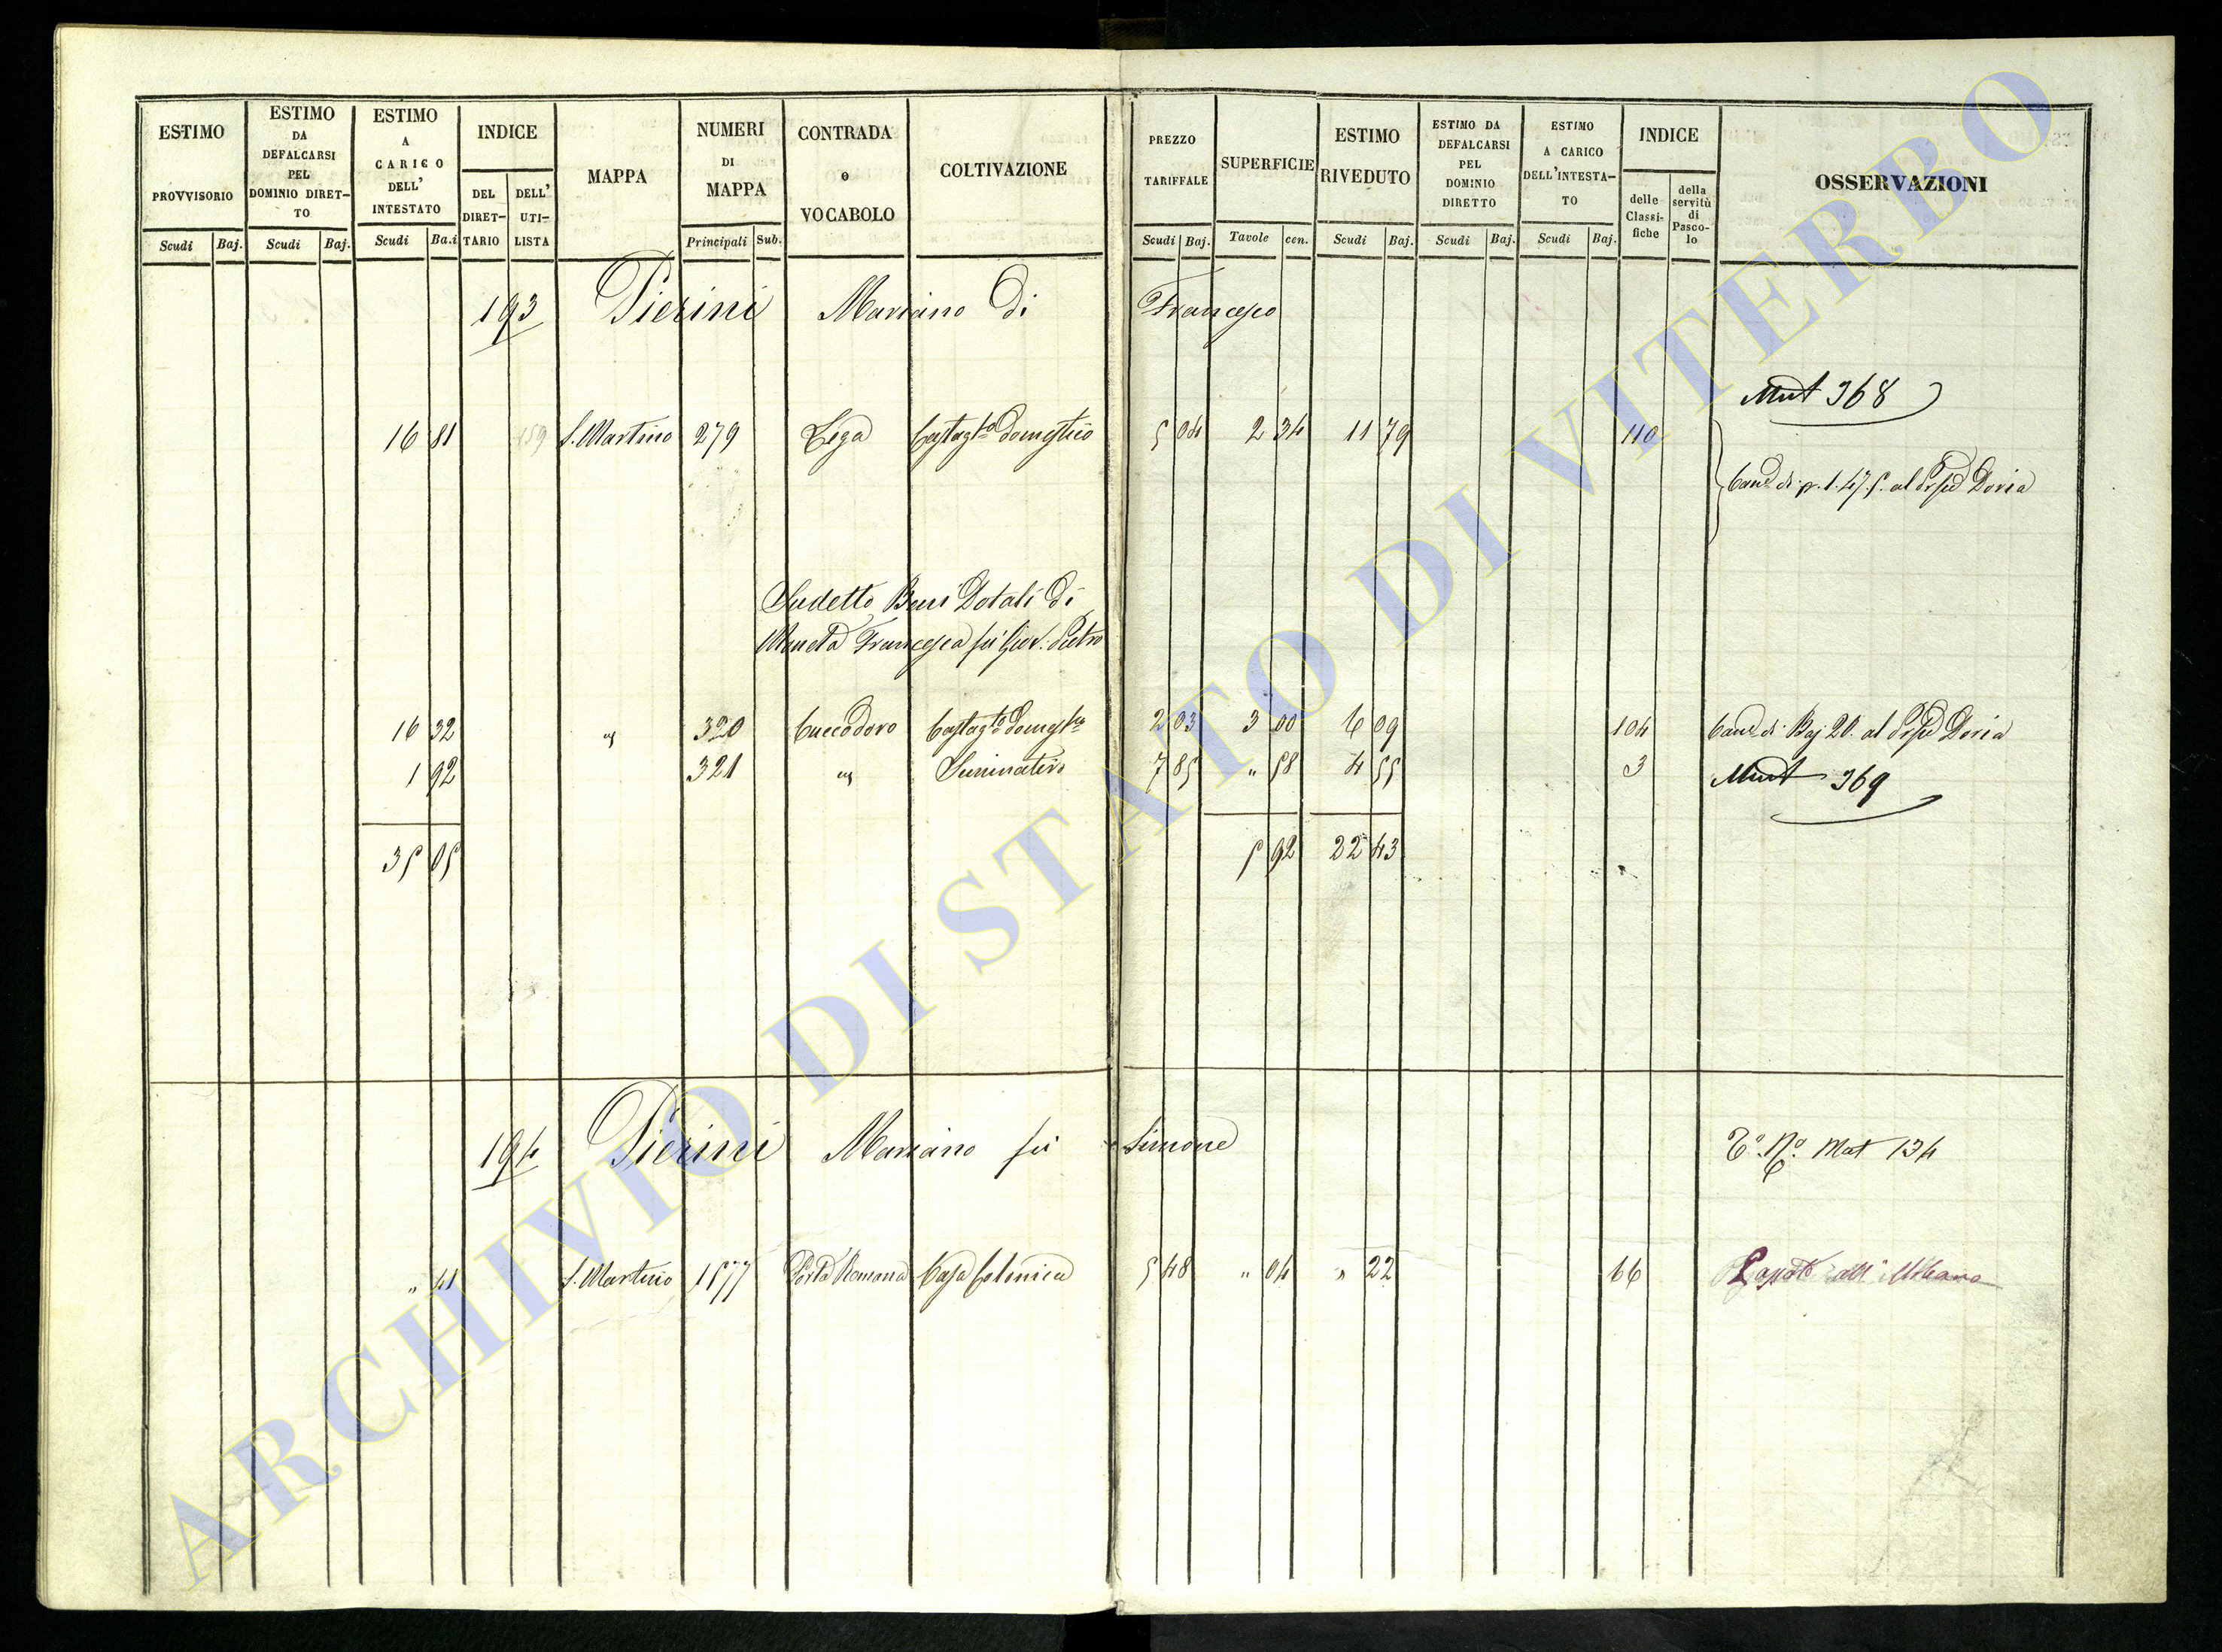 ESTIMO PROVVISORIO Scudi Baj.
ESTIMO DA DEFALCARSI PEL DOMINIO DIRET-TO Scudi Baj.
ESTIMO A CARICO DELL' INTESTATO Scudi Ba.i
INDICE DEL DIRET-TARIO DELL' UTI-LISTA
MAPPA
NUMERI DI MAPPA Principali Sub.
CONTRADA o VOCABOLO
COLTIVAZIONE
PREZZO TARIFFALE Scudi Baj.
SUPERFICIE Tavole cen.
ESTIMO RIVEDUTO Scudi Baj.
ESTIMO DA DEFALCARSI PEL DOMINIO DIRETTO Scudi Baj.
ESTIMO A CARICO DELL'INTESTA-TO Scudi Baj.
INDICE delle Classi-fiche della servitù di Pasco-lo
OSSERVAZIONI
193 Pierini Mariano Di Francesco
Mut 368
16 81 S. Martino 279 Lega Castag.to domestico 5 04 2 34 11 79 110
Can.e di p. 1.47.5. al Doria
Sudetto Beni Dotali Di
Francesca fu Giov: Pietro
16 32 " 320 Cuccodoro Castag.to Domest.co 2 03 3 00 6 09 104 Can.e di Baj 20. al Doria
1 92 321 " Seminativo 7 85 " 58 4 55 3 Mut 369
35 05 5 92 22 43
194 Pierini Mariano fu Simone
T.o N.o Mat 134
" 41 S. Martino 1577 Porta Romana Casa Colonica 5 48 " 04 " 22 66 Passato all' Urbano
ARCHIVIO DI STATO DI VITERBO